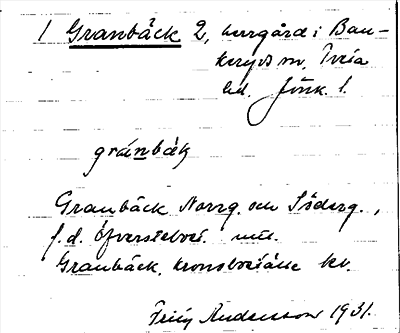 1 Granbäck 2, herrgård i Ban-
keryds sn, Tveta
hd. Jönk. l.
gránbäk
Granbäck Norrg. och Söderg.,
f.d. öfverstebost. mtl.
Granbäck, kronoboställe kv.
Fritz Andersson 1931.